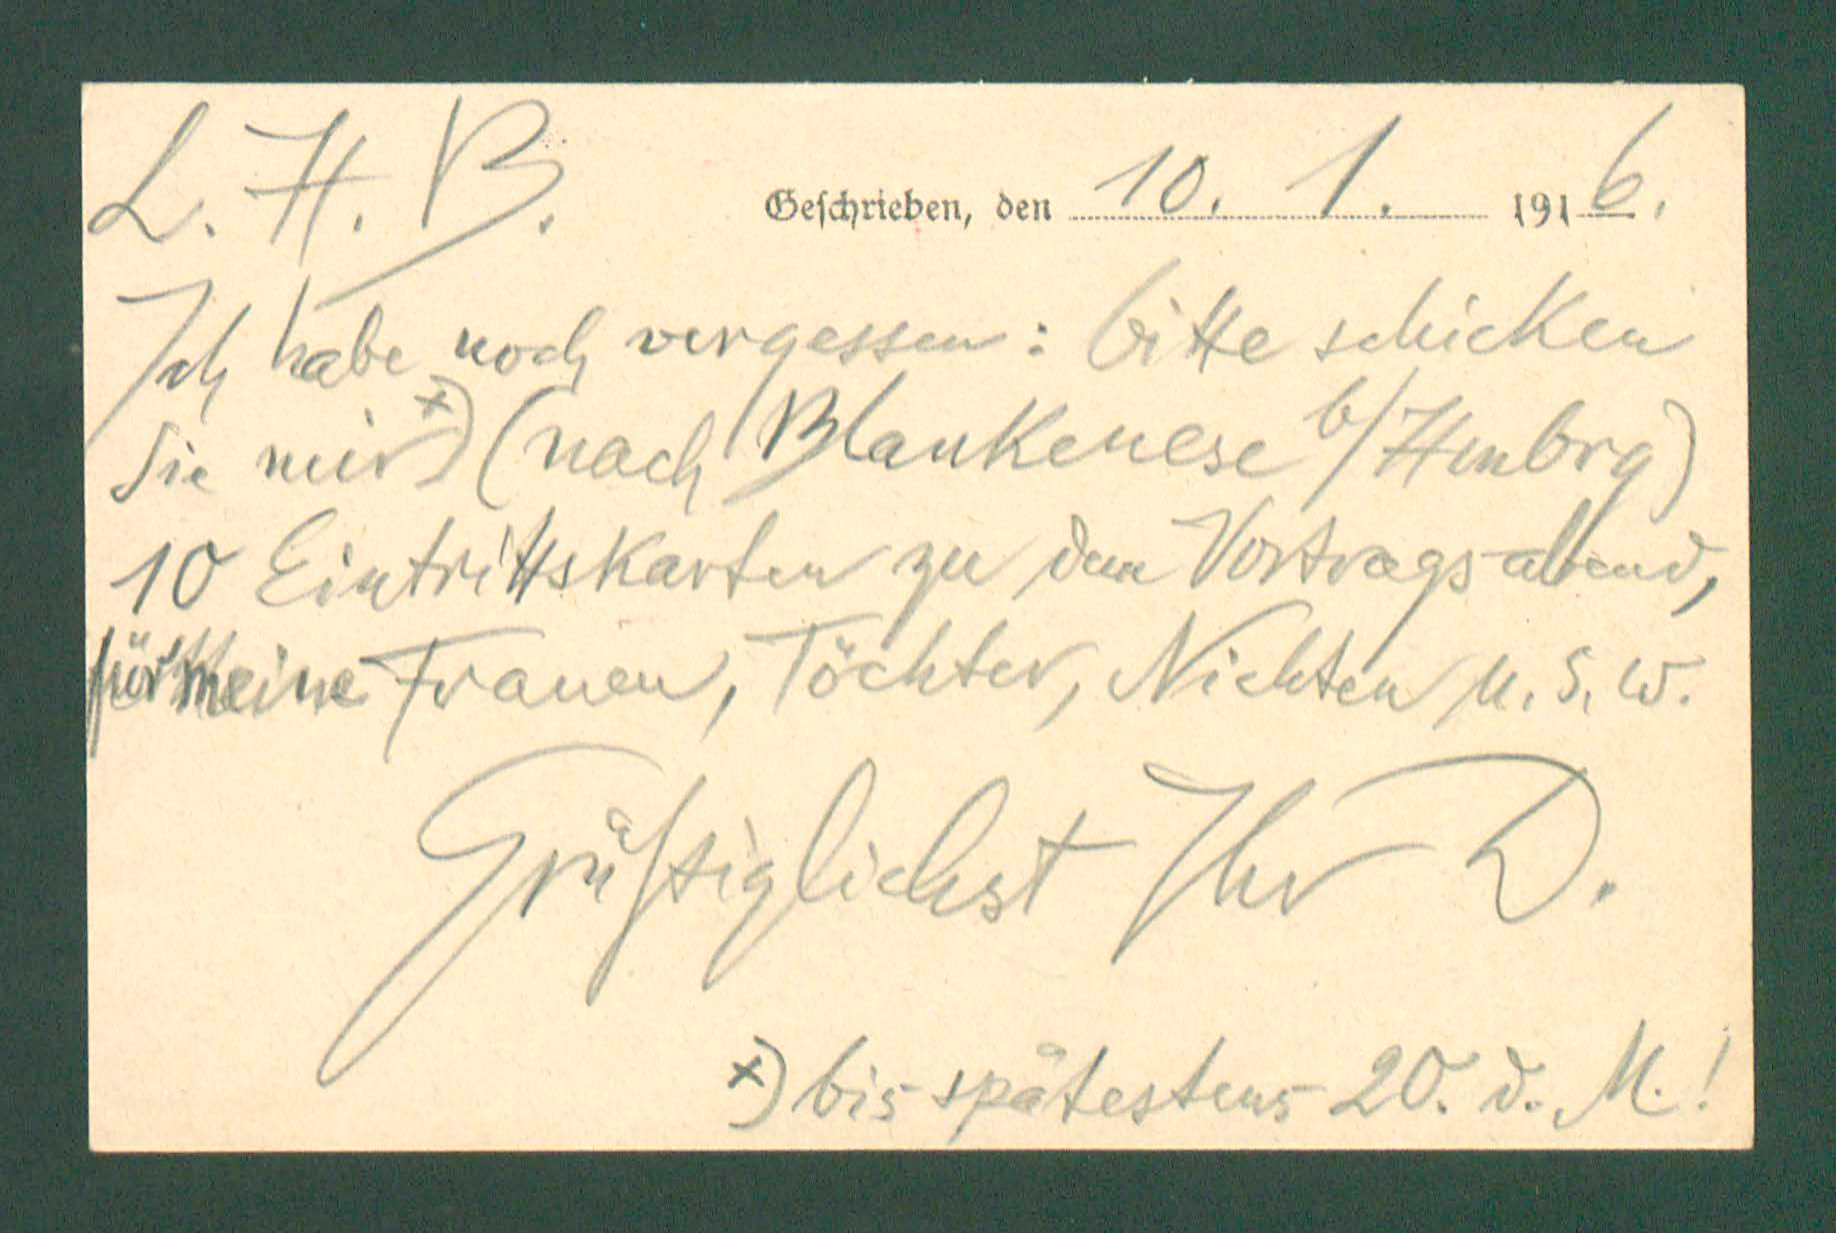 L. H. B.
Geschrieben, den 10. 1. 1916.
Ich habe noch vergessen: bitte schicken
Sie mir x) (nach Blankenese b/Hmbrg)
10 Eintrittskarten zu dem Vortragsabend,
für meine Frauen, Töchter, Nichten u. s. w.
Grüßiglichst Ihr D.
x) bis spätestens 20. d. M.!